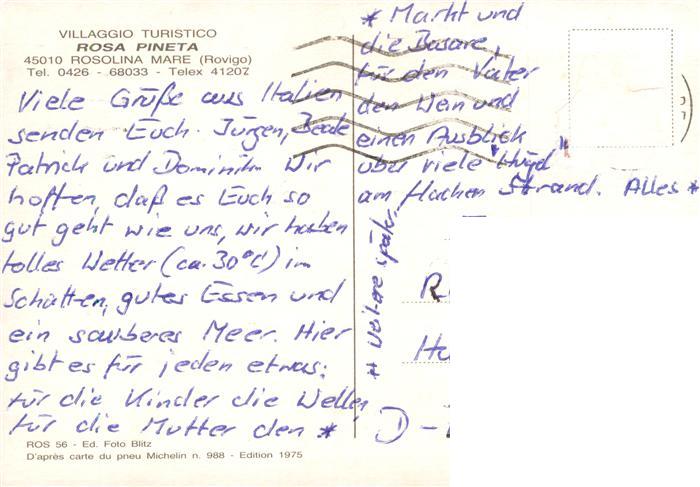 VILLAGGIO TURISTICO
ROSA PINETA
45010 ROSOLINA MARE (Rovigo)
Tel. 0426 - 68033 - Telex 41207
Viele Grüße aus Italien
senden Euch Jürgen, Beate
Patrick und Dominik. Wir
hoffen, daß es Euch so
gut geht wie uns, wir haben
tolles Wetter (ca. 30°C) im
Schatten, gutes Essen und
ein sauberes Meer. Hier
gibt es für jeden etwas:
für die Kinder die Wellen,
für die Mutter den *
* Markt und
die Basare,
für den Vater
den Wein und
einen Ausblick
über viele Hügel
am flachen Strand. Alles *
* Weitere später
R
Hu
D -
ROS 56 - Ed. Foto Blitz
D'après carte du pneu Michelin n. 988 - Edition 1975